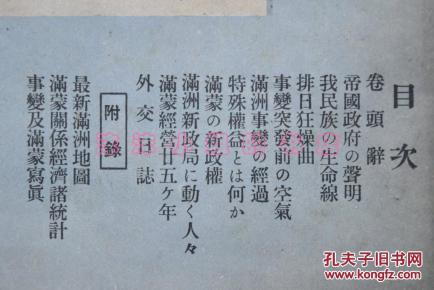 目次
卷頭辭
帝國政府の聲明
我民族の生命線
排日狂燥曲
事變突發前の空氣
滿洲事變の經過
特殊權益とは何か
滿蒙の新政權
滿洲新政局に動く人々
滿蒙經營廿五ヶ年
外交日誌
附錄
最新滿洲地圖
滿蒙關係經濟諸統計
事變及滿蒙寫眞
孔夫子旧书网
www.kongfz.com